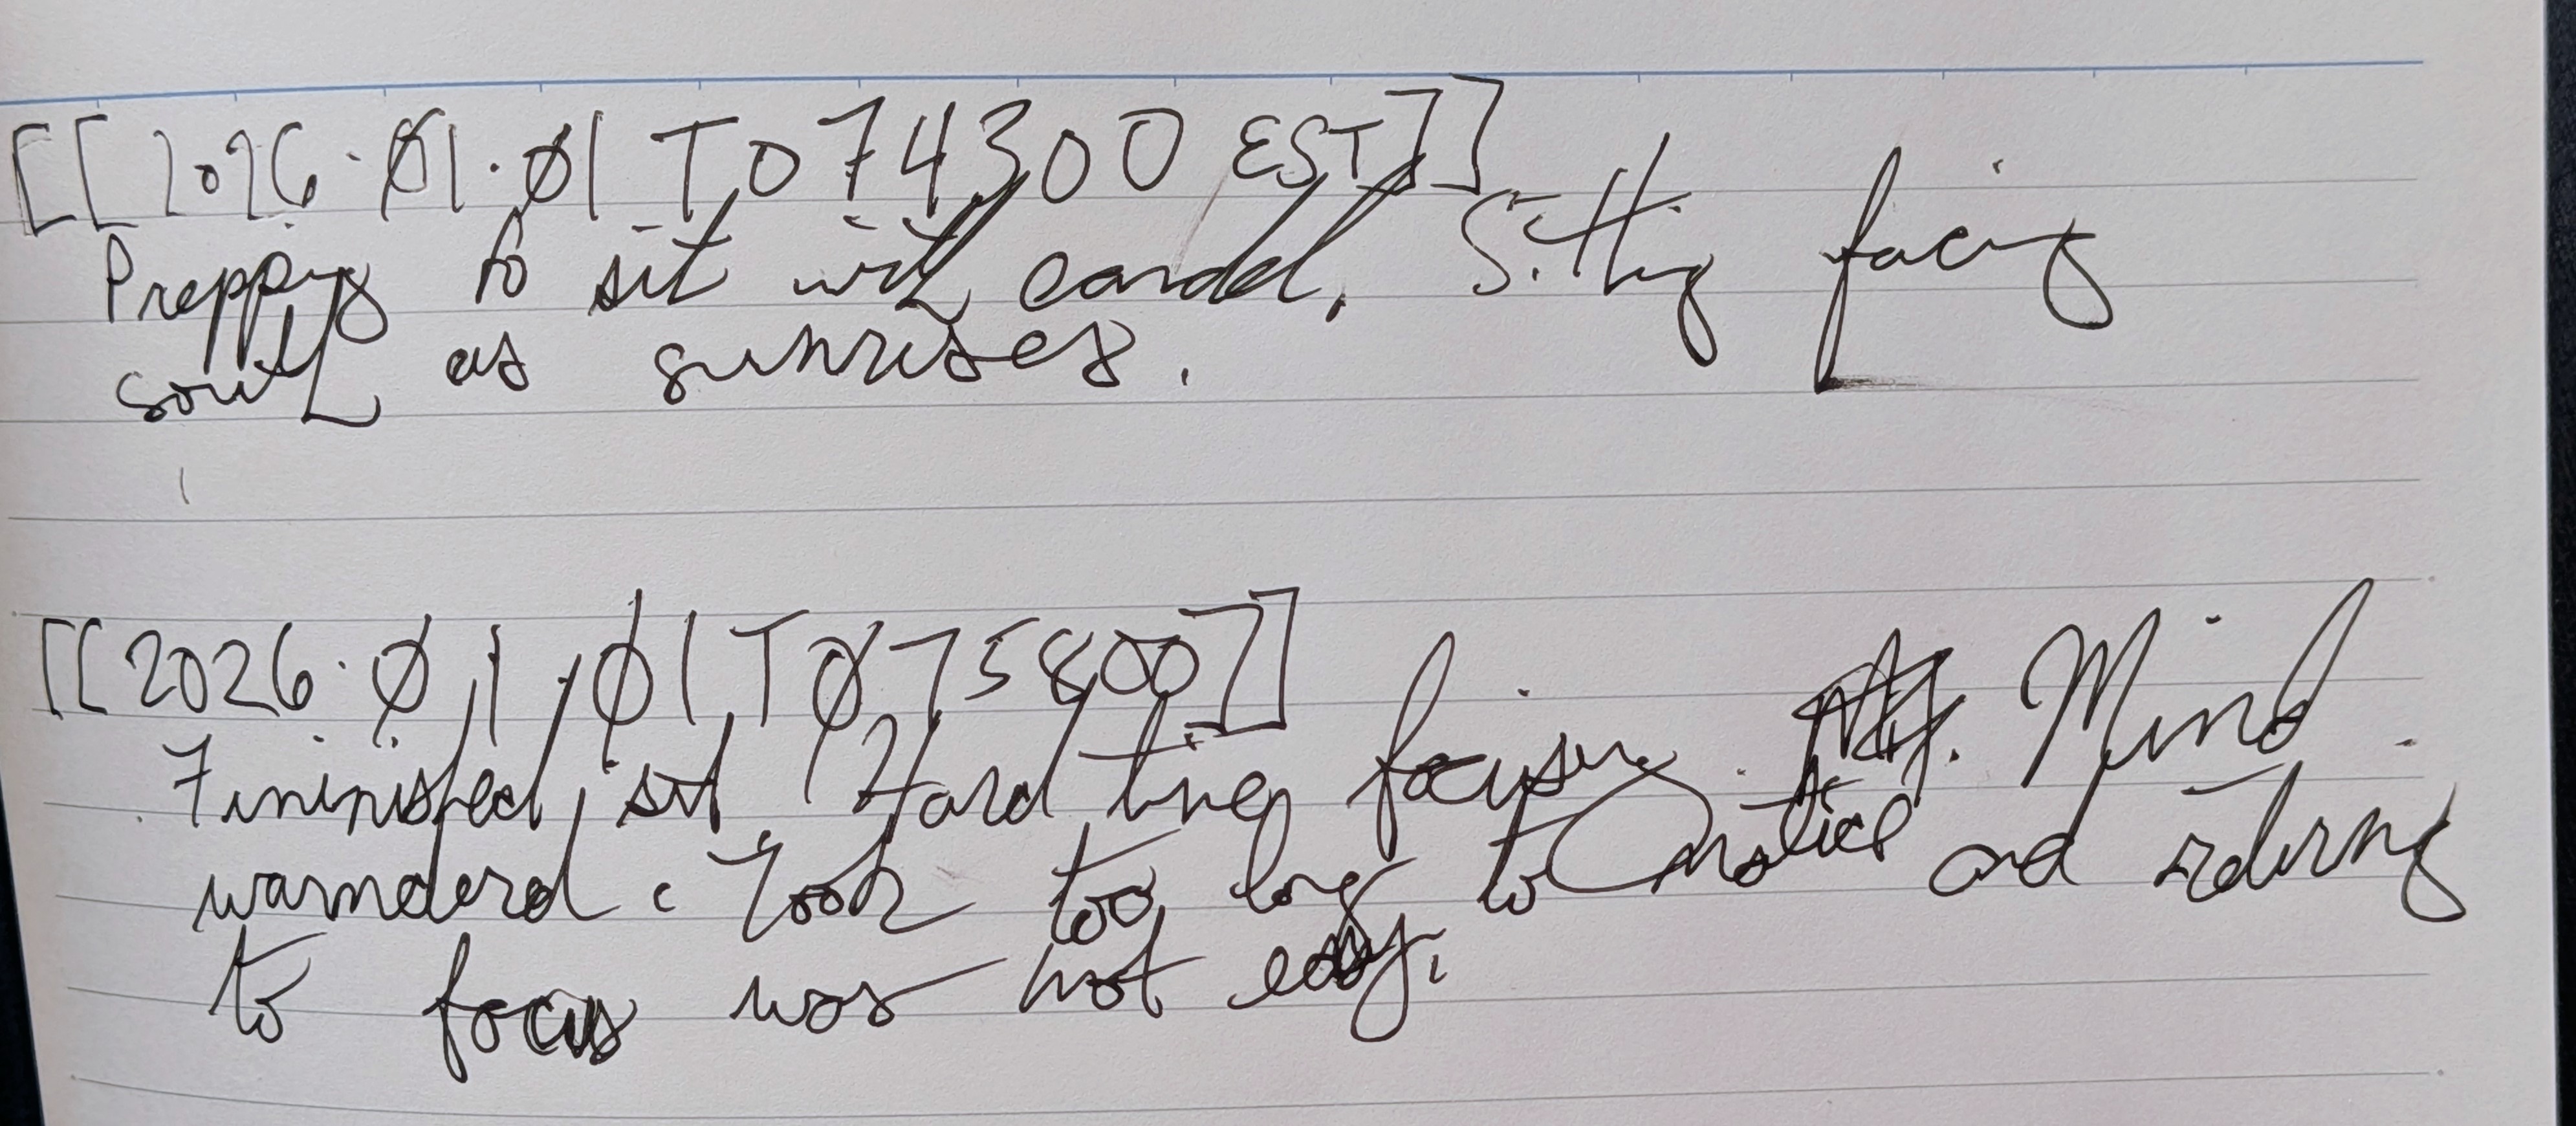 [[2026.01.01T074300 EST]]
Prepping to sit with candl. Sitting facing
south as sunrises.
[[2026.01.01T075800]]
Fininished sit. Hard time focusing. Mind
warnderd. Took too long to notice and returning
to focus was not easy.